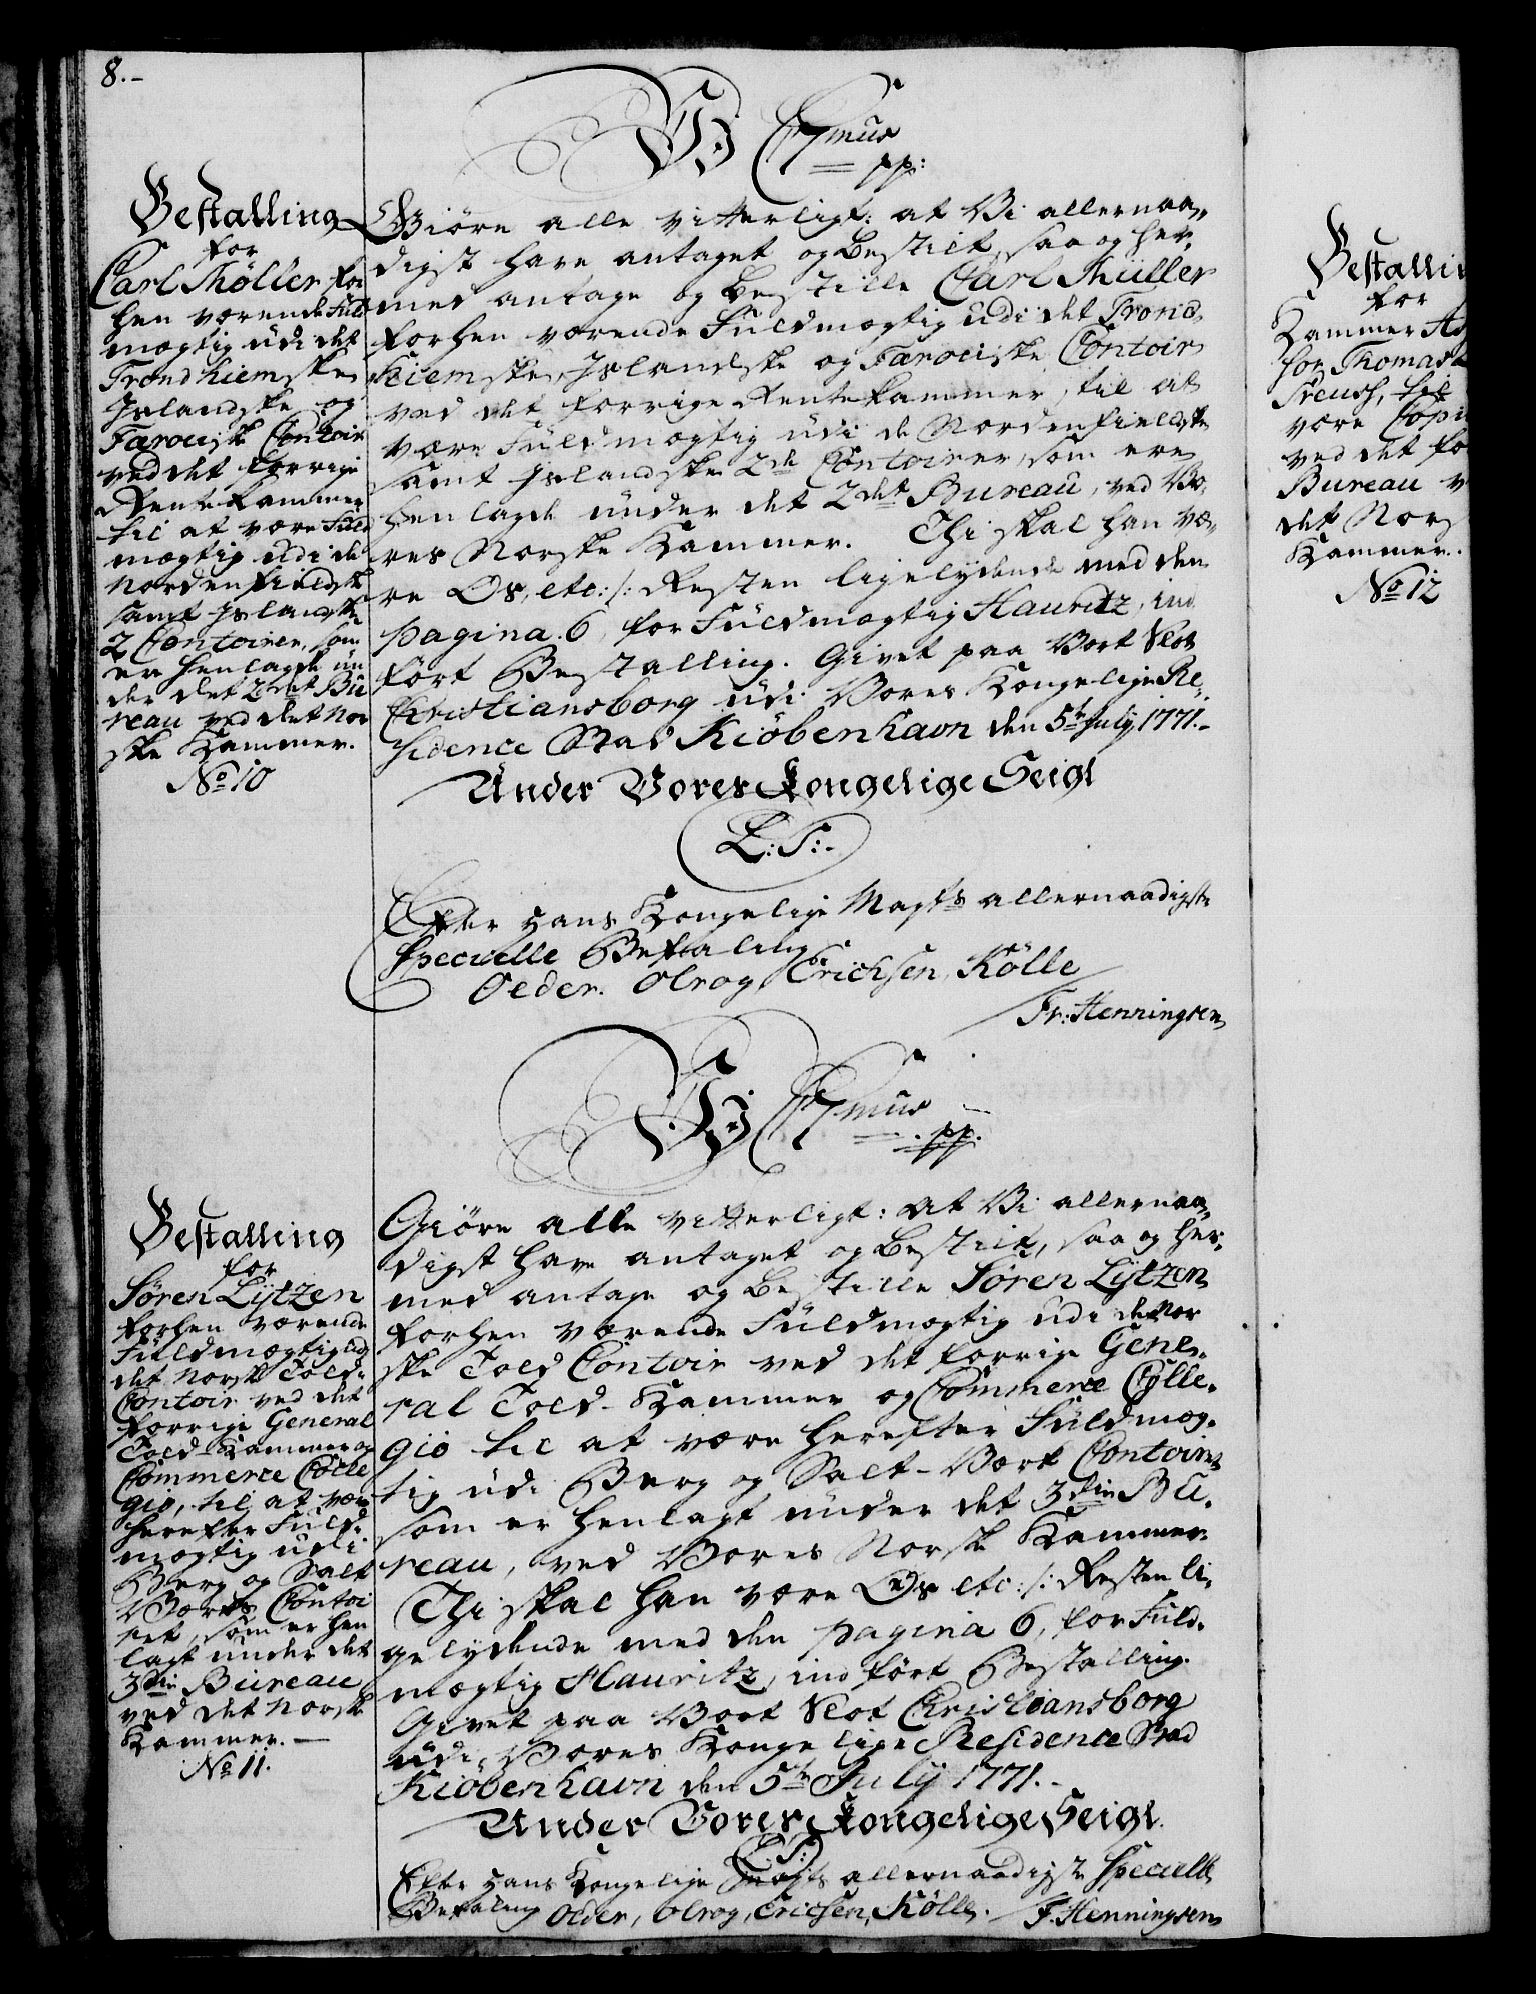 8.-
Vi Chr 7mus
pp:
Bestalling
for
Carl Møller for
hen værende Fuld
mægtig udi det
Trondhiemske
Islandske og
Faroeiske Contoir
ved det forrige
Rentekammer
til at være Fuld
mægtig udi de
Nordenfieldske
samt Islandske
2 Contoirer, som
er henlagde un
der det 2det Bu
reau ved det Nor
ske Kammer.
No 10
Giøre alle vitterligt: at Vi allernaa,
digst have antaget og bestilt, saa og her,
med antage og bestille Carl Müller
forhen værende Fuldmægtig udi det Trond,
hiemske, Islandske og Faroeiske Contoir
ved det forrige Rentekammer, til at
være Fuldmægtig udi de Nordenfieldske
samt Islandske 2de Contoirer, som ere
henlagde under det 2det Bureau, ved Vo,
res Norske Kammer. Thi skal han væ,
re Os, etc: /: Resten ligelydende med den
pagina 6, for Fuldmægtig Hauritz, ind
ført Bestalling. Givet paa Vort Slot
Christiansborg udi Vores Kongelige Re,
sidence Stad Kiöbenhavn den 5te July 1771.-
Under Vores Kongelige Seigl
L:S:-
Efter Hans Kongelige Mayts allernaadigste
Specielle Befaling
Oeder. Olrog, Erichsen, Kölle
Fr: Henningsen
Vi Chr 7mus
pp.
Bestalling
for
Søren Lytzen
forhen værende
Fuldmægtig udi
det Norske Told-
Contoir ved det
forrige General
Told-Kammer og
Commerce Colle
gio, til at være
herefter Fuld-
mægtig udi
Berg og Salt
Værks Contoi
ret, som er hen
lagt under det
3die Bureau
ved det Norske
Kammer. —
No 11.
Giöre alle vitterligt: at Vi allernaa,
digst have antaget og bestilt, saa og her,
med antage og bestille Søren Lytzen
forhen værende Fuldmægtig udi det Nor
ske Told Contoir ved det forrige Gene,
ral Told-Kammer og Commerce Colle,
gio til at være herefter Fuldmæg,
tig udi Berg og Salt-Værk Contoiret
som er henlagt under det 3die Bu,
reau, ved Vores Norske Kammer.
Thi skal han være Os etc: /: Resten li,
gelydende med den pagina 6, for Fuld,
mægtig Hauritz, indført Bestalling.
Givet paa Vort Slot Christiansborg
udi Vores Kongelige Residence Stad
Kiöbenhavn den 5te July 1771.-
Under Vores Kongelige Seigl.
L:S:
Efter Hans Kongelige Mayts allernaadigste Specielle
Befaling Oeder, Olrog, Ericsen, Kölle. F. Henningsen
Bestallin
for
Kammer As
for Thomas
Treusch, til
være Copi
ved det fo
Bureau v
det Nors
Kammer.
No 12